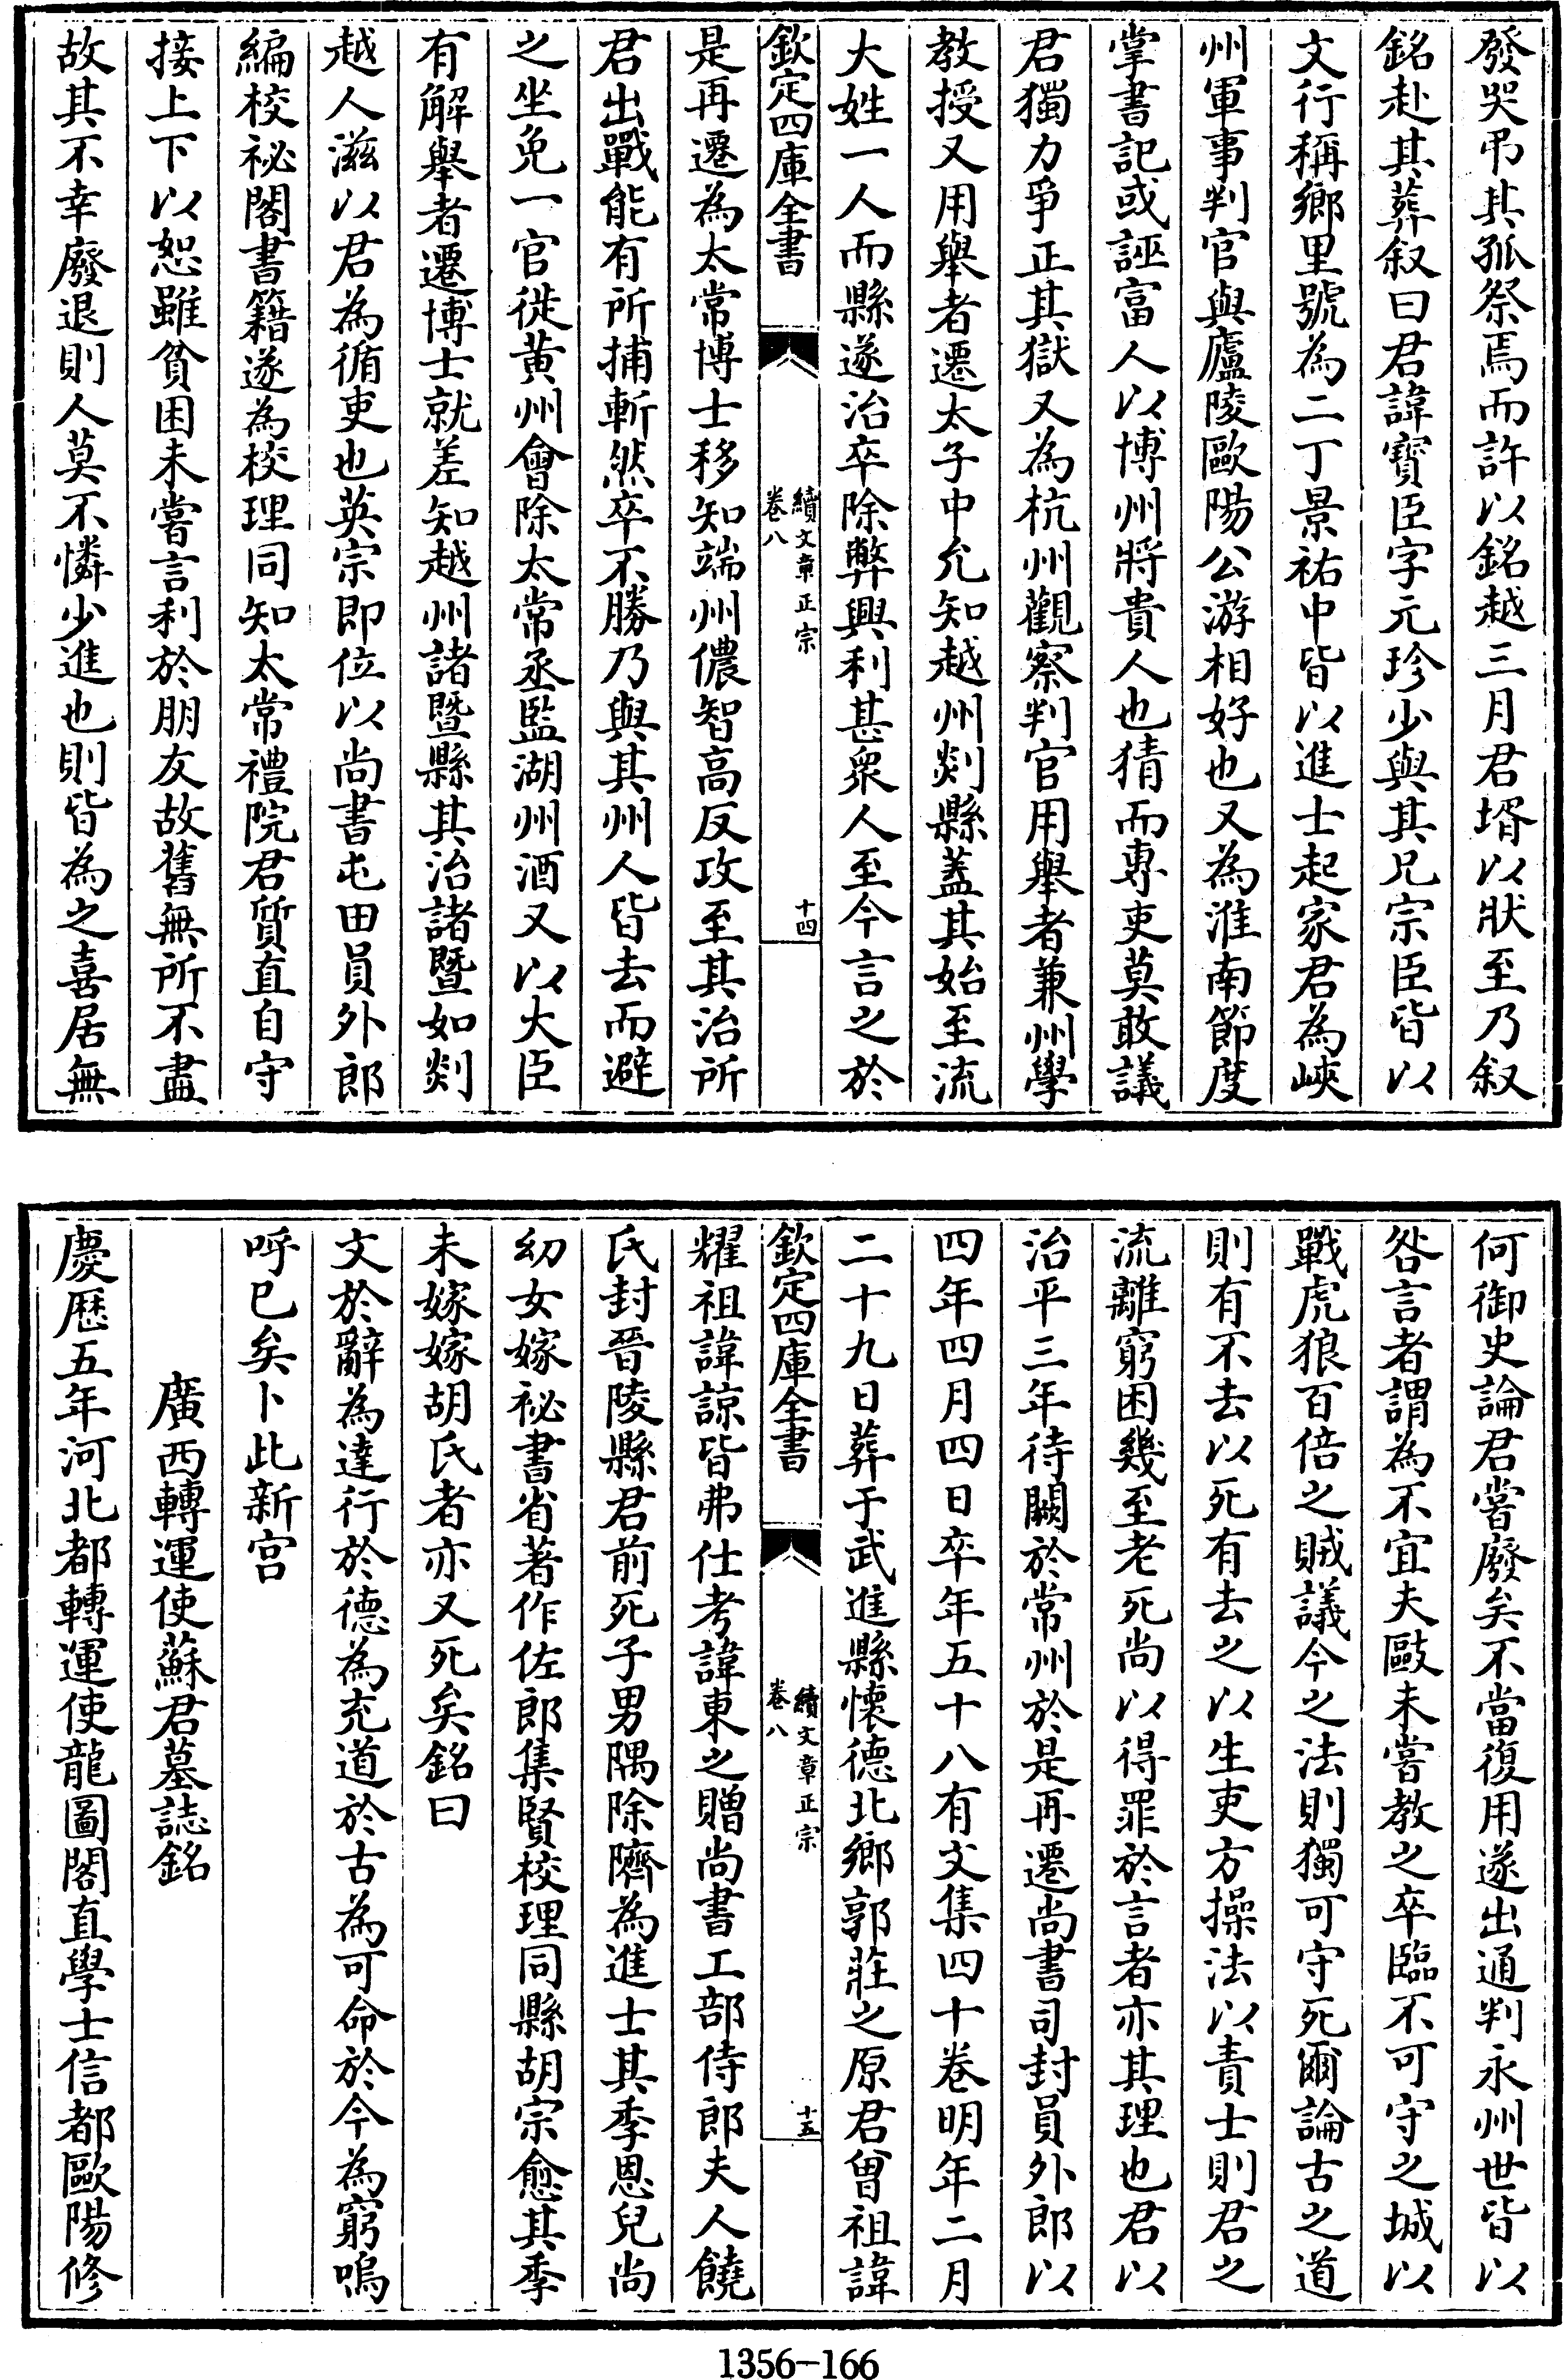 發哭弔其孤祭焉而許以銘越三月君壻以狀至乃叙
銘赴其葬叙曰君諱寶臣字元珍少與其兄宗臣皆以
文行稱鄉里號為二丁景祐中皆以進士起家君為峽
州軍事判官與廬陵歐陽公游相好也又為淮南節度
掌書記或誣富人以博州將貴人也猜而專吏莫敢議
君獨力爭正其獄又為杭州觀察判官用舉者兼州學
教授又用舉者遷太子中允知越州剡縣蓋其始至流
大姓一人而縣遂治卒除弊興利甚衆人至今言之於
欽定四庫全書
續文章正宗
卷八
十四
是再遷為太常博士移知端州儂智高反攻至其治所
君出戰能有所捕斬然卒不勝乃與其州人皆去而避
之坐免一官徙黃州會除太常丞監湖州酒又以大臣
有解舉者遷博士就差知越州諸暨縣其治諸暨如剡
越人滋以君為循吏也英宗即位以尚書屯田員外郎
編校祕閣書籍遂為校理同知太常禮院君質直自守
接上下以恕雖貧困未嘗言利於朋友故舊無所不盡
故其不幸廢退則人莫不憐少進也則皆為之喜居無
何御史論君嘗廢矣不當復用遂出通判永州世皆以
咎言者謂為不宜夫敺未嘗教之卒臨不可守之城以
戰虎狼百倍之賊議今之法則獨可守死爾論古之道
則有不去以死有去之以生吏方操法以責士則君之
流離窮困幾至老死尚以得罪於言者亦其理也君以
治平三年待闕於常州於是再遷尚書司封員外郎以
四年四月四日卒年五十八有文集四十卷明年二月
二十九日葬于武進縣懷德北鄉郭莊之原君曾祖諱
欽定四庫全書
續文章正宗
卷八
十五
耀祖諱諒皆弗仕考諱東之贈尚書工部侍郎夫人饒
氏封晉陵縣君前死子男隅除隮為進士其季恩兒尚
幼女嫁祕書省著作佐郎集賢校理同縣胡宗愈其季
未嫁嫁胡氏者亦又死矣銘曰
文於辭為達行於德為充道於古為可命於今為窮嗚
呼已矣卜此新宮
廣西轉運使蘇君墓誌銘
慶歷五年河北都轉運使龍圖閣直學士信都歐陽修
1356-166